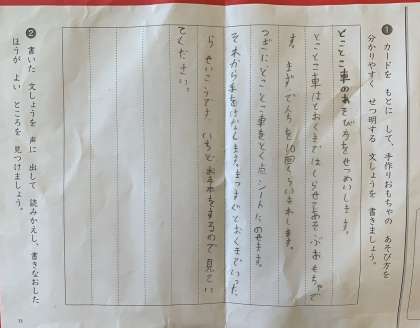 ❶ カードを もとに して、手作りおもちゃの あそび方を
分かりやすく せつ明する 文しょうを 書きましょう。
とことこ車のあそび方をせつめいします。
とことこ車はとおくまではしらせてあそぶおもちゃで
す。まず でんちを10回くらいまわします。
つぎに、とことこ車をとく点シートにのせます。
それから手をはなします。まっすぐとおくまでいった
らせいこうです。いちどお手本をするので見てい
てください。
❷ 書いた 文しょうを 声に 出して 読みかえし、書きなおした
ほうが よい ところを 見つけましょう。